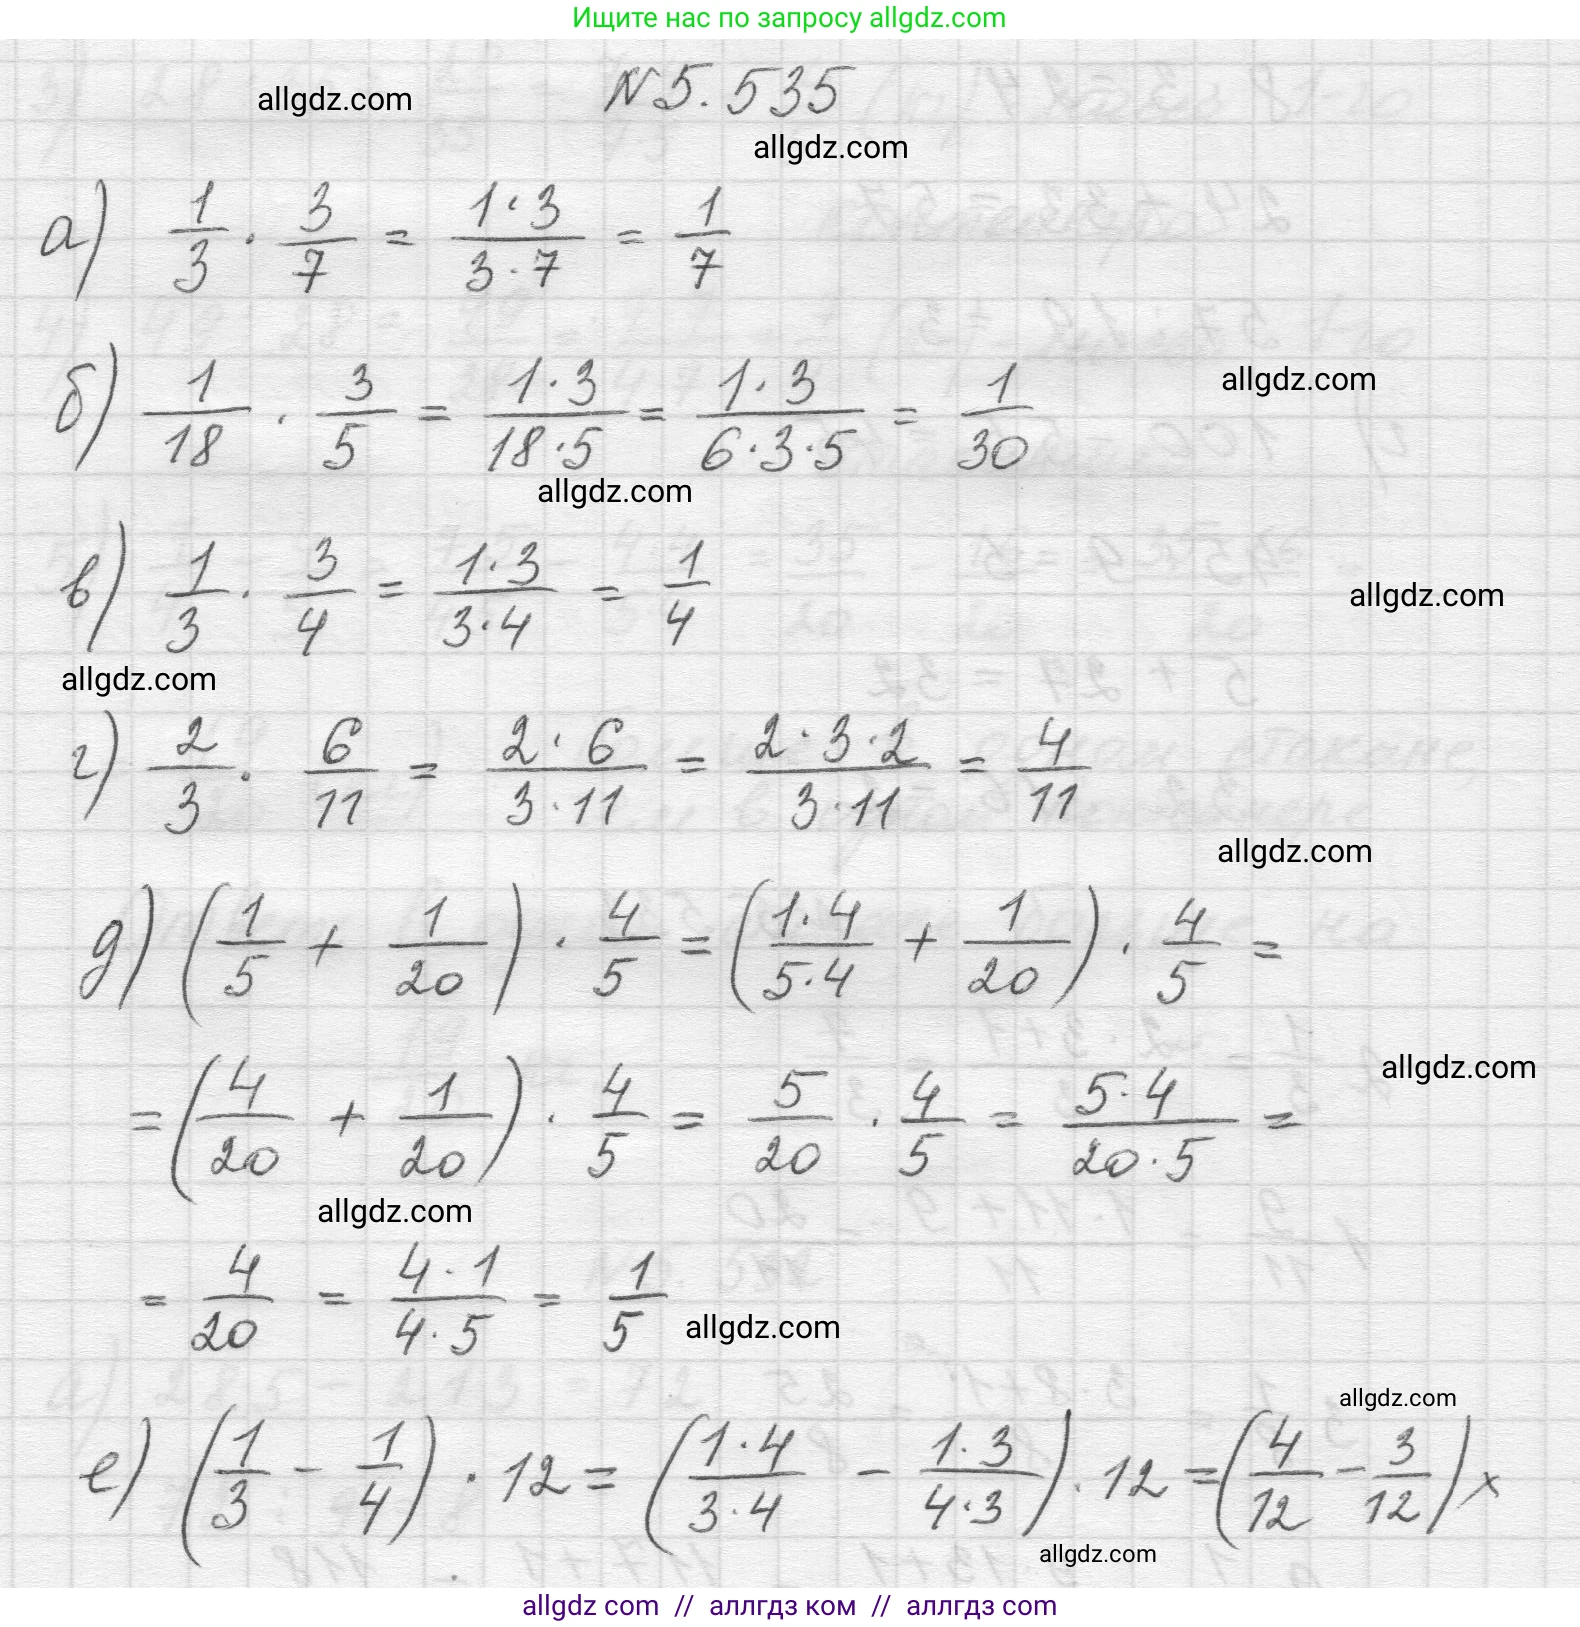 Ищите нас по запросу allgdz.com
allgdz.com
N 5.535
allgdz.com
а) 1/3 · 3/7 = (1·3)/(3·7) = 1/7
б) 1/18 · 3/5 = (1·3)/(18·5) = (1·3)/(6·3·5) = 1/30
allgdz.com
allgdz.com
в) 1/3 · 3/4 = (1·3)/(3·4) = 1/4
allgdz.com
allgdz.com
г) 2/3 · 6/11 = (2·6)/(3·11) = (2·3·2)/(3·11) = 4/11
allgdz.com
д) (1/5 + 1/20) · 4/5 = ((1·4)/(5·4) + 1/20) · 4/5 =
allgdz.com
= (4/20 + 1/20) · 4/5 = 5/20 · 4/5 = (5·4)/(20·5) =
allgdz.com
= 4/20 = (4·1)/(4·5) = 1/5
allgdz.com
allgdz.com
е) (1/3 - 1/4) · 12 = ((1·4)/(3·4) - (1·3)/(4·3)) · 12 = (4/12 - 3/12) ×
allgdz.com
allgdz com // аллгдз ком // аллгдз com